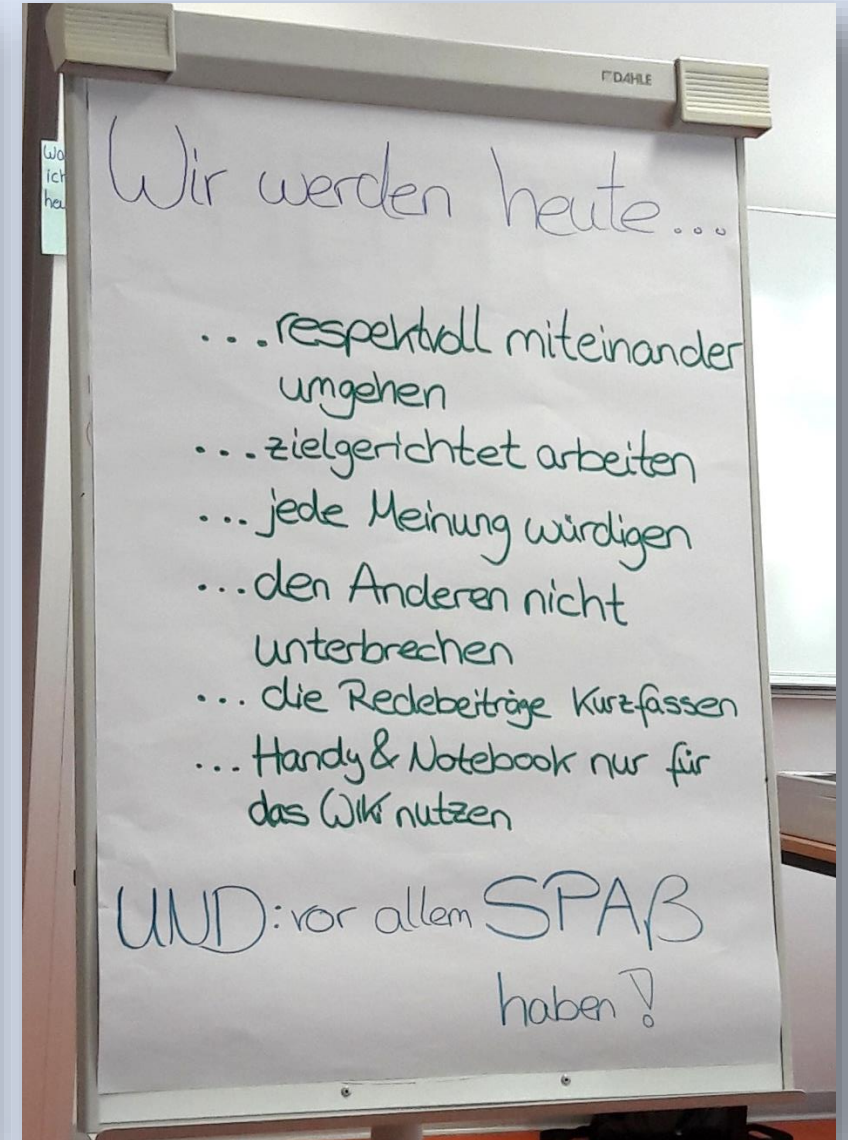 DAHLE
Wo
ich
Wir werden heute...
...respektvoll miteinander
umgehen
...zielgerichtet arbeiten
...jede Meinung würdigen
...den Anderen nicht
unterbrechen
...die Redebeiträge Kurzfassen
...Handy & Notebook nur für
das Wiki nutzen
UND: vor allem SPAß
haben!